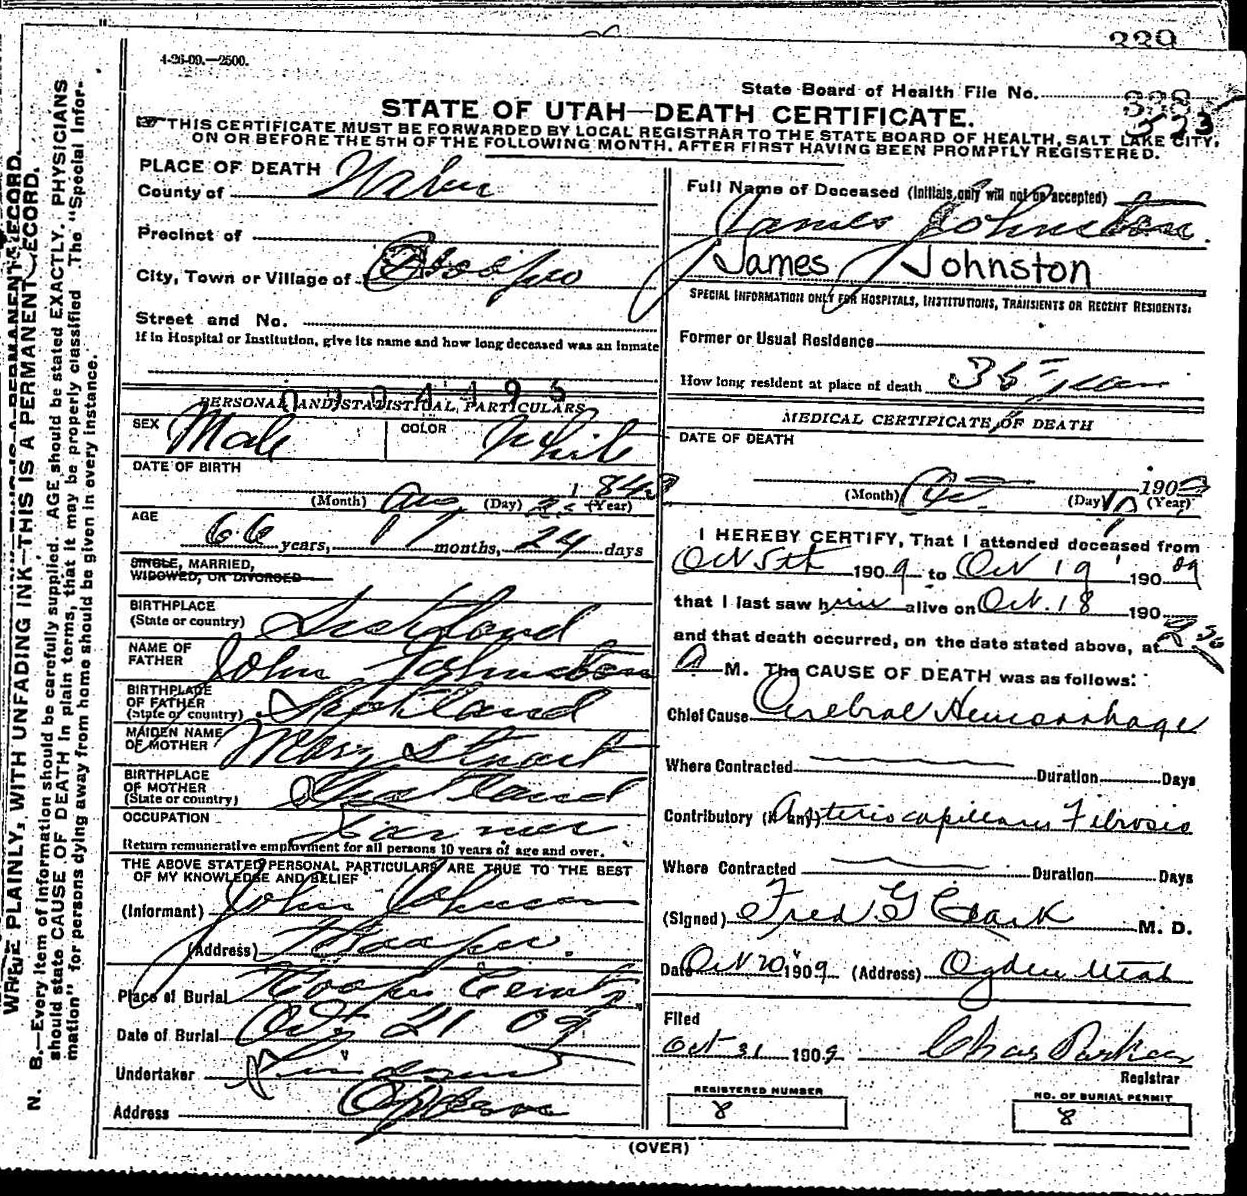 339
4-26-09.—2500.
State Board of Health File No. 338
323
STATE OF UTAH—DEATH CERTIFICATE.
THIS CERTIFICATE MUST BE FORWARDED BY LOCAL REGISTRAR TO THE STATE BOARD OF HEALTH, SALT LAKE CITY,
ON OR BEFORE THE 5TH OF THE FOLLOWING MONTH, AFTER FIRST HAVING BEEN PROMPTLY REGISTERED.
WRITE PLAINLY, WITH UNFADING INK—THIS IS A PERMANENT RECORD.
N. B.—Every item of information should be carefully supplied. AGE should be stated EXACTLY. PHYSICIANS
should state CAUSE OF DEATH in plain terms, that it may be properly classified. The "Special Infor-
mation" for persons dying away from home should be given in every instance.
PLACE OF DEATH
County of Weber
Precinct of
City, Town or Village of Hooper
Street and No.
If in Hospital or Institution, give its name and how long deceased was an inmate
PERSONAL AND STATISTICAL PARTICULARS
SEX Male COLOR White
DATE OF BIRTH
(Month) Aug (Day) (Year) 1843
AGE
66 years, months, 24 days
SINGLE, MARRIED,
WIDOWED, OR DIVORCED
BIRTHPLACE
(State or country) Scotland
NAME OF
FATHER John Johnston
BIRTHPLACE
OF FATHER
(State or country) Scotland
MAIDEN NAME
OF MOTHER Mary Stuart
BIRTHPLACE
OF MOTHER
(State or country) Scotland
OCCUPATION Farmer
Return remunerative employment for all persons 10 years of age and over.
THE ABOVE STATED PERSONAL PARTICULARS ARE TRUE TO THE BEST
OF MY KNOWLEDGE AND BELIEF
(Informant) John Johnson
(Address) Hooper
Place of Burial Hooper
Date of Burial Oct 21 09
Undertaker
Address
Full Name of Deceased (Initials only will not be accepted)
James Johnston
James Johnston
SPECIAL INFORMATION ONLY FOR HOSPITALS, INSTITUTIONS, TRANSIENTS OR RECENT RESIDENTS:
Former or Usual Residence
How long resident at place of death 35 years
MEDICAL CERTIFICATE OF DEATH
DATE OF DEATH
(Month) Oct (Day) (Year) 1909
I HEREBY CERTIFY, That I attended deceased from
Oct 5th 1909 to Oct 19 1909
that I last saw him alive on Oct. 18 190
and that death occurred, on the date stated above, at
A M. The CAUSE OF DEATH was as follows:
Chief Cause Cerebral Hemorrhage
Where Contracted Duration Days
Contributory (if any) Arteriocapillary Fibrosis
Where Contracted Duration Days
(Signed) Fred G Clark M. D.
Date Oct 20 1909 (Address) Ogden Utah
Filed
Oct 31 1909 Chas Parker
Registrar
REGISTERED NUMBER
8
NO. OF BURIAL PERMIT
8
(OVER)